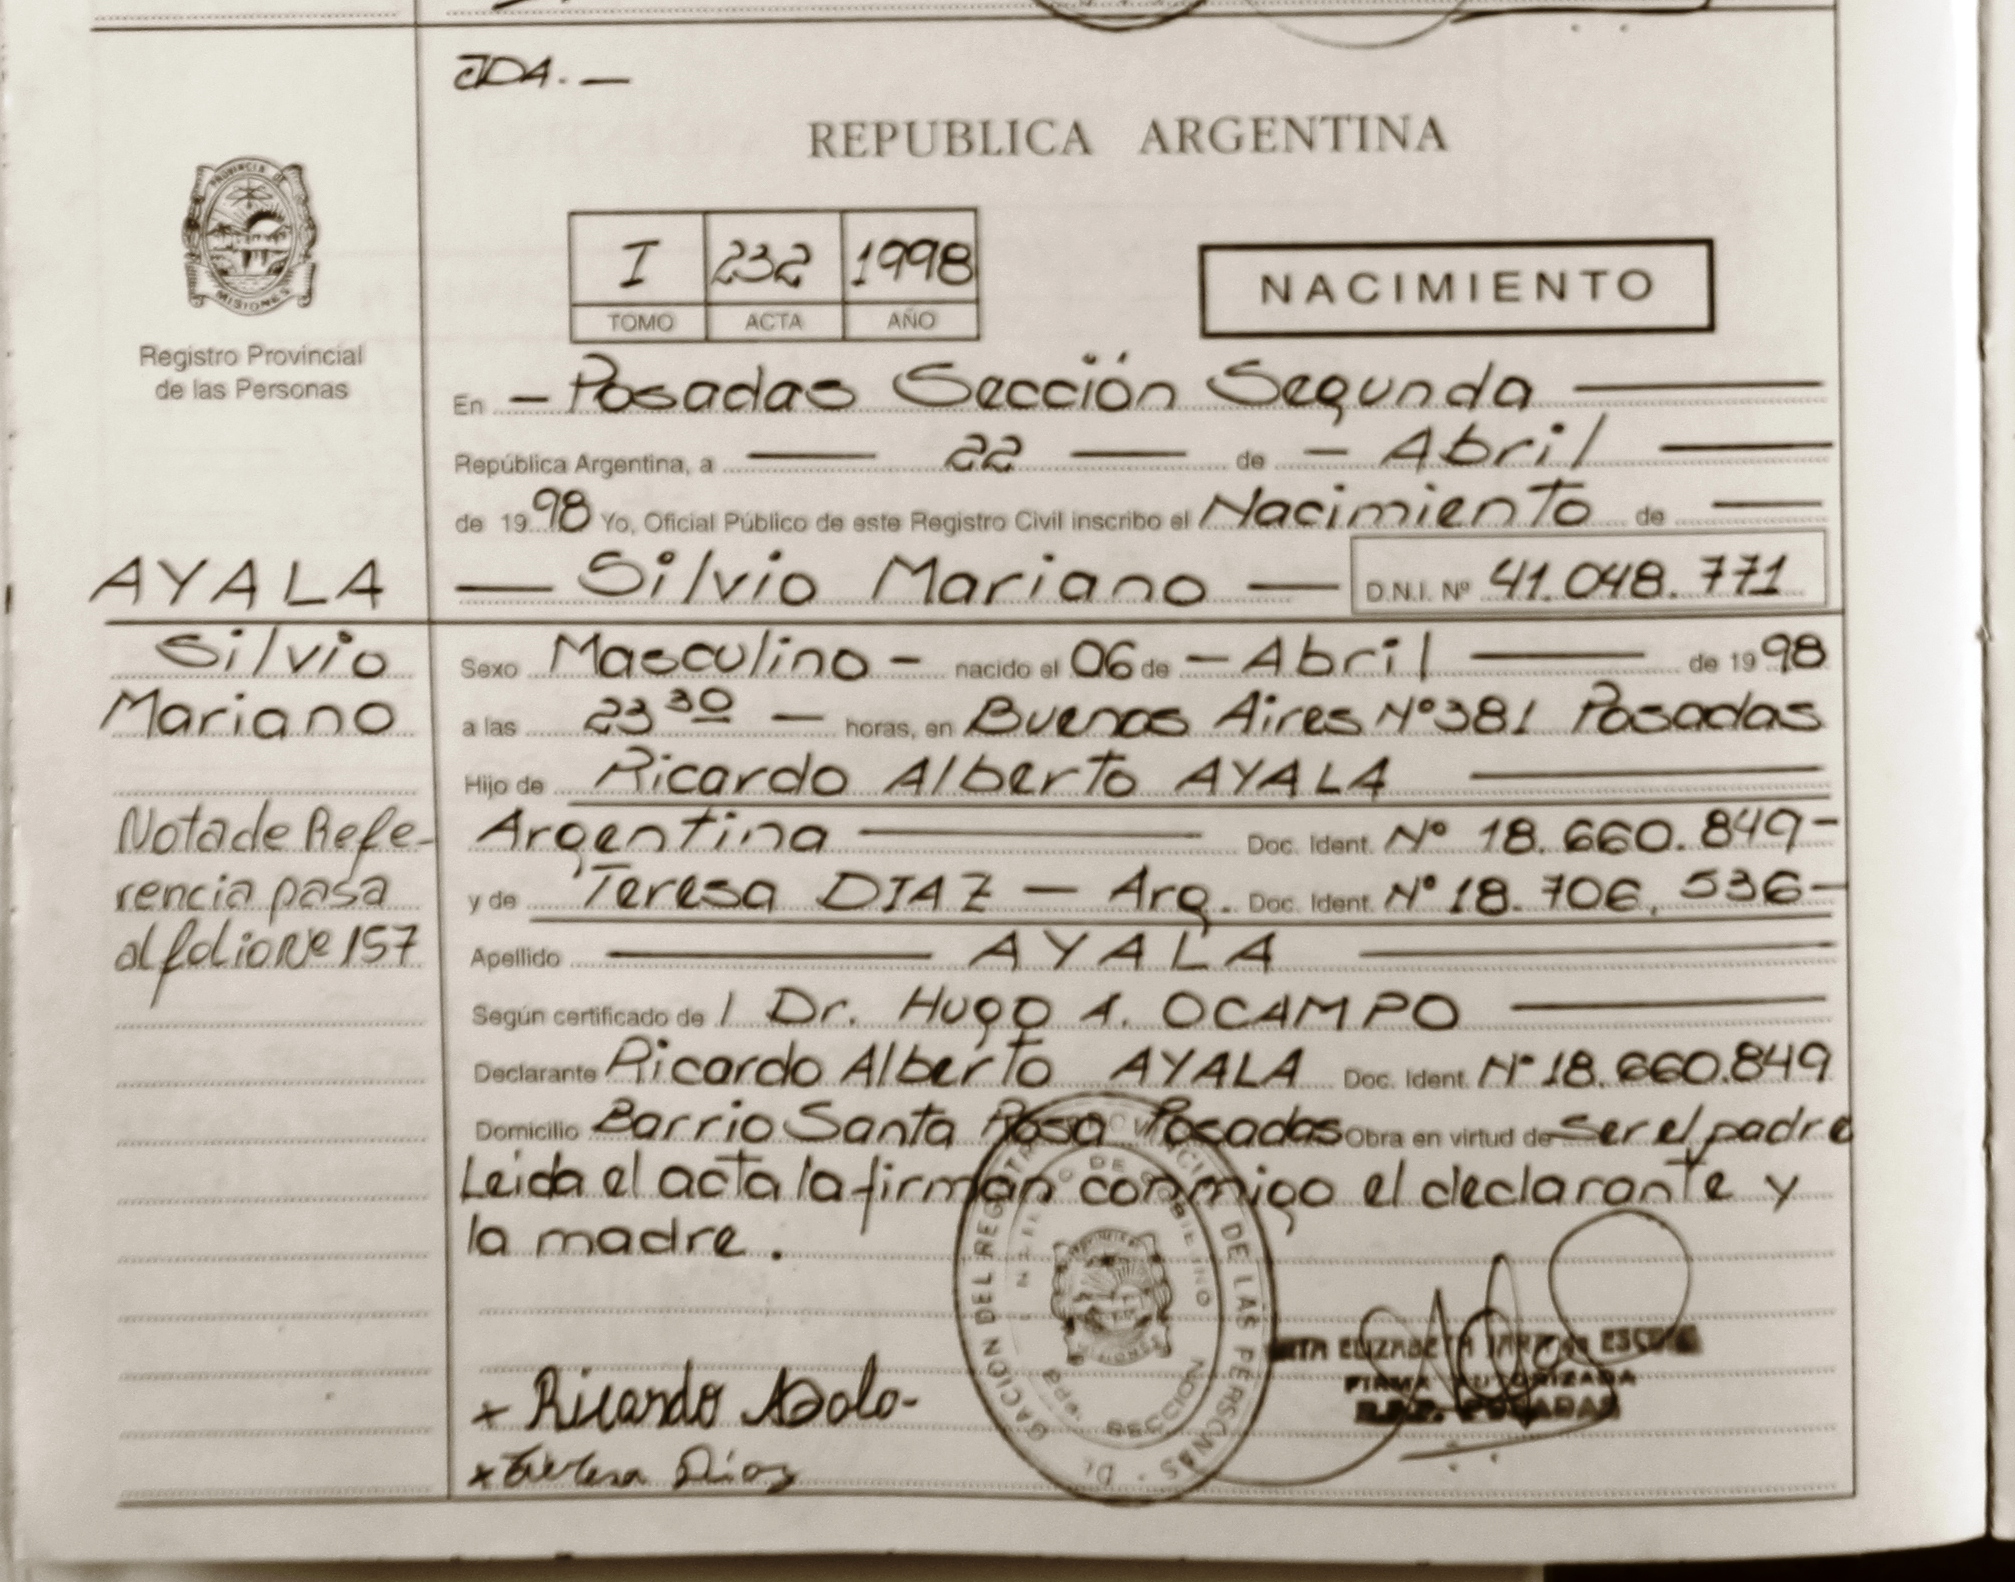 JDA. —
REPUBLICA ARGENTINA
PROVINCIA DE
MISIONES
Registro Provincial
de las Personas
I 232 1998
TOMO ACTA AÑO
NACIMIENTO
En — Posadas Sección Segunda —
República Argentina, a — 22 — de — Abril —
de 1998 Yo, Oficial Público de este Registro Civil inscribo el Nacimiento de —
AYALA
— Silvio Mariano — D.N.I. Nº 41.048.771
Silvio
Mariano
Nota de Refe-
rencia pasa
al folio Nº 157
Sexo Masculino — nacido el 06 de — Abril — de 1998
a las 23 30 — horas, en Buenos Aires Nº 381 Posadas
Hijo de Ricardo Alberto AYALA —
Argentina — Doc. Ident. Nº 18.660.849 —
y de Teresa DIAZ — Arg. Doc. Ident. Nº 18.706.536 —
Apellido — AYALA —
Según certificado de / Dr. Hugo A. OCAMPO —
Declarante Ricardo Alberto AYALA Doc. Ident. Nº 18.660.849
Domicilio Barrio Santa Rosa Posadas Obra en virtud de ser el padre
Leida el acta la firman conmigo el declarante y
la madre.
DEL REGISTRO PROVINCIAL DE LAS PERSONAS
MINISTERIO DE GOBIERNO
SECCION
ELIZABETH
FIRMA AUTORIZADA
R.P.P. POSADAS
x Ricardo
x Teresa Diaz